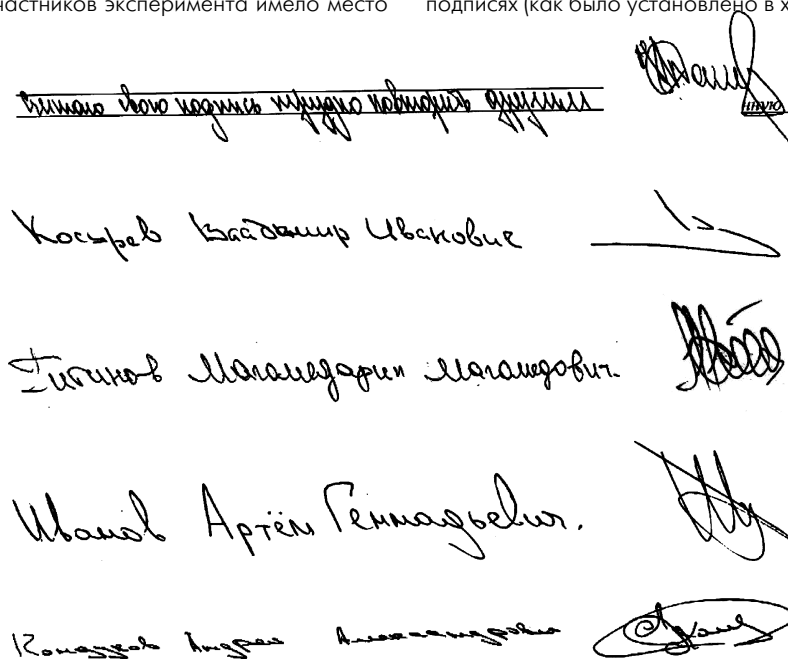 частников эксперимента имело место
подписях (как было установлено в х
Считаю свою подпись трудно повторить другими
нную
Косырев Владимир Иванович
Магомедович.
Иванов Артём Геннадьевич.
Андрей Александрович